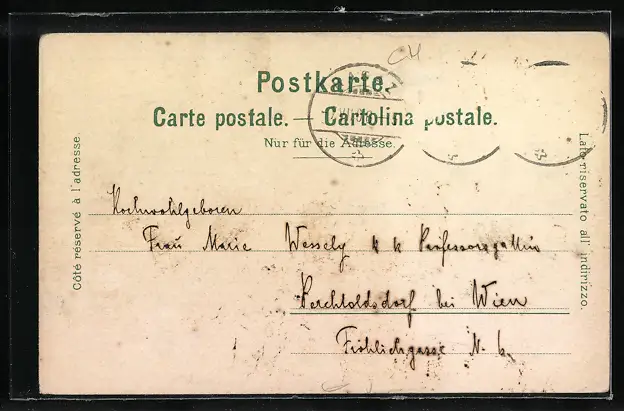 CH
Postkarte.
Carte postale. — Cartolina postale.
Nur für die Adresse.
Côté réservé à l'adresse.
Lato riservato all' indirizzo.
Hochwohlgeboren
Frau Marie Wessely k k Professorsgattin
Perchtoldsdorf bei Wien
Fröhlichgasse N. 6.